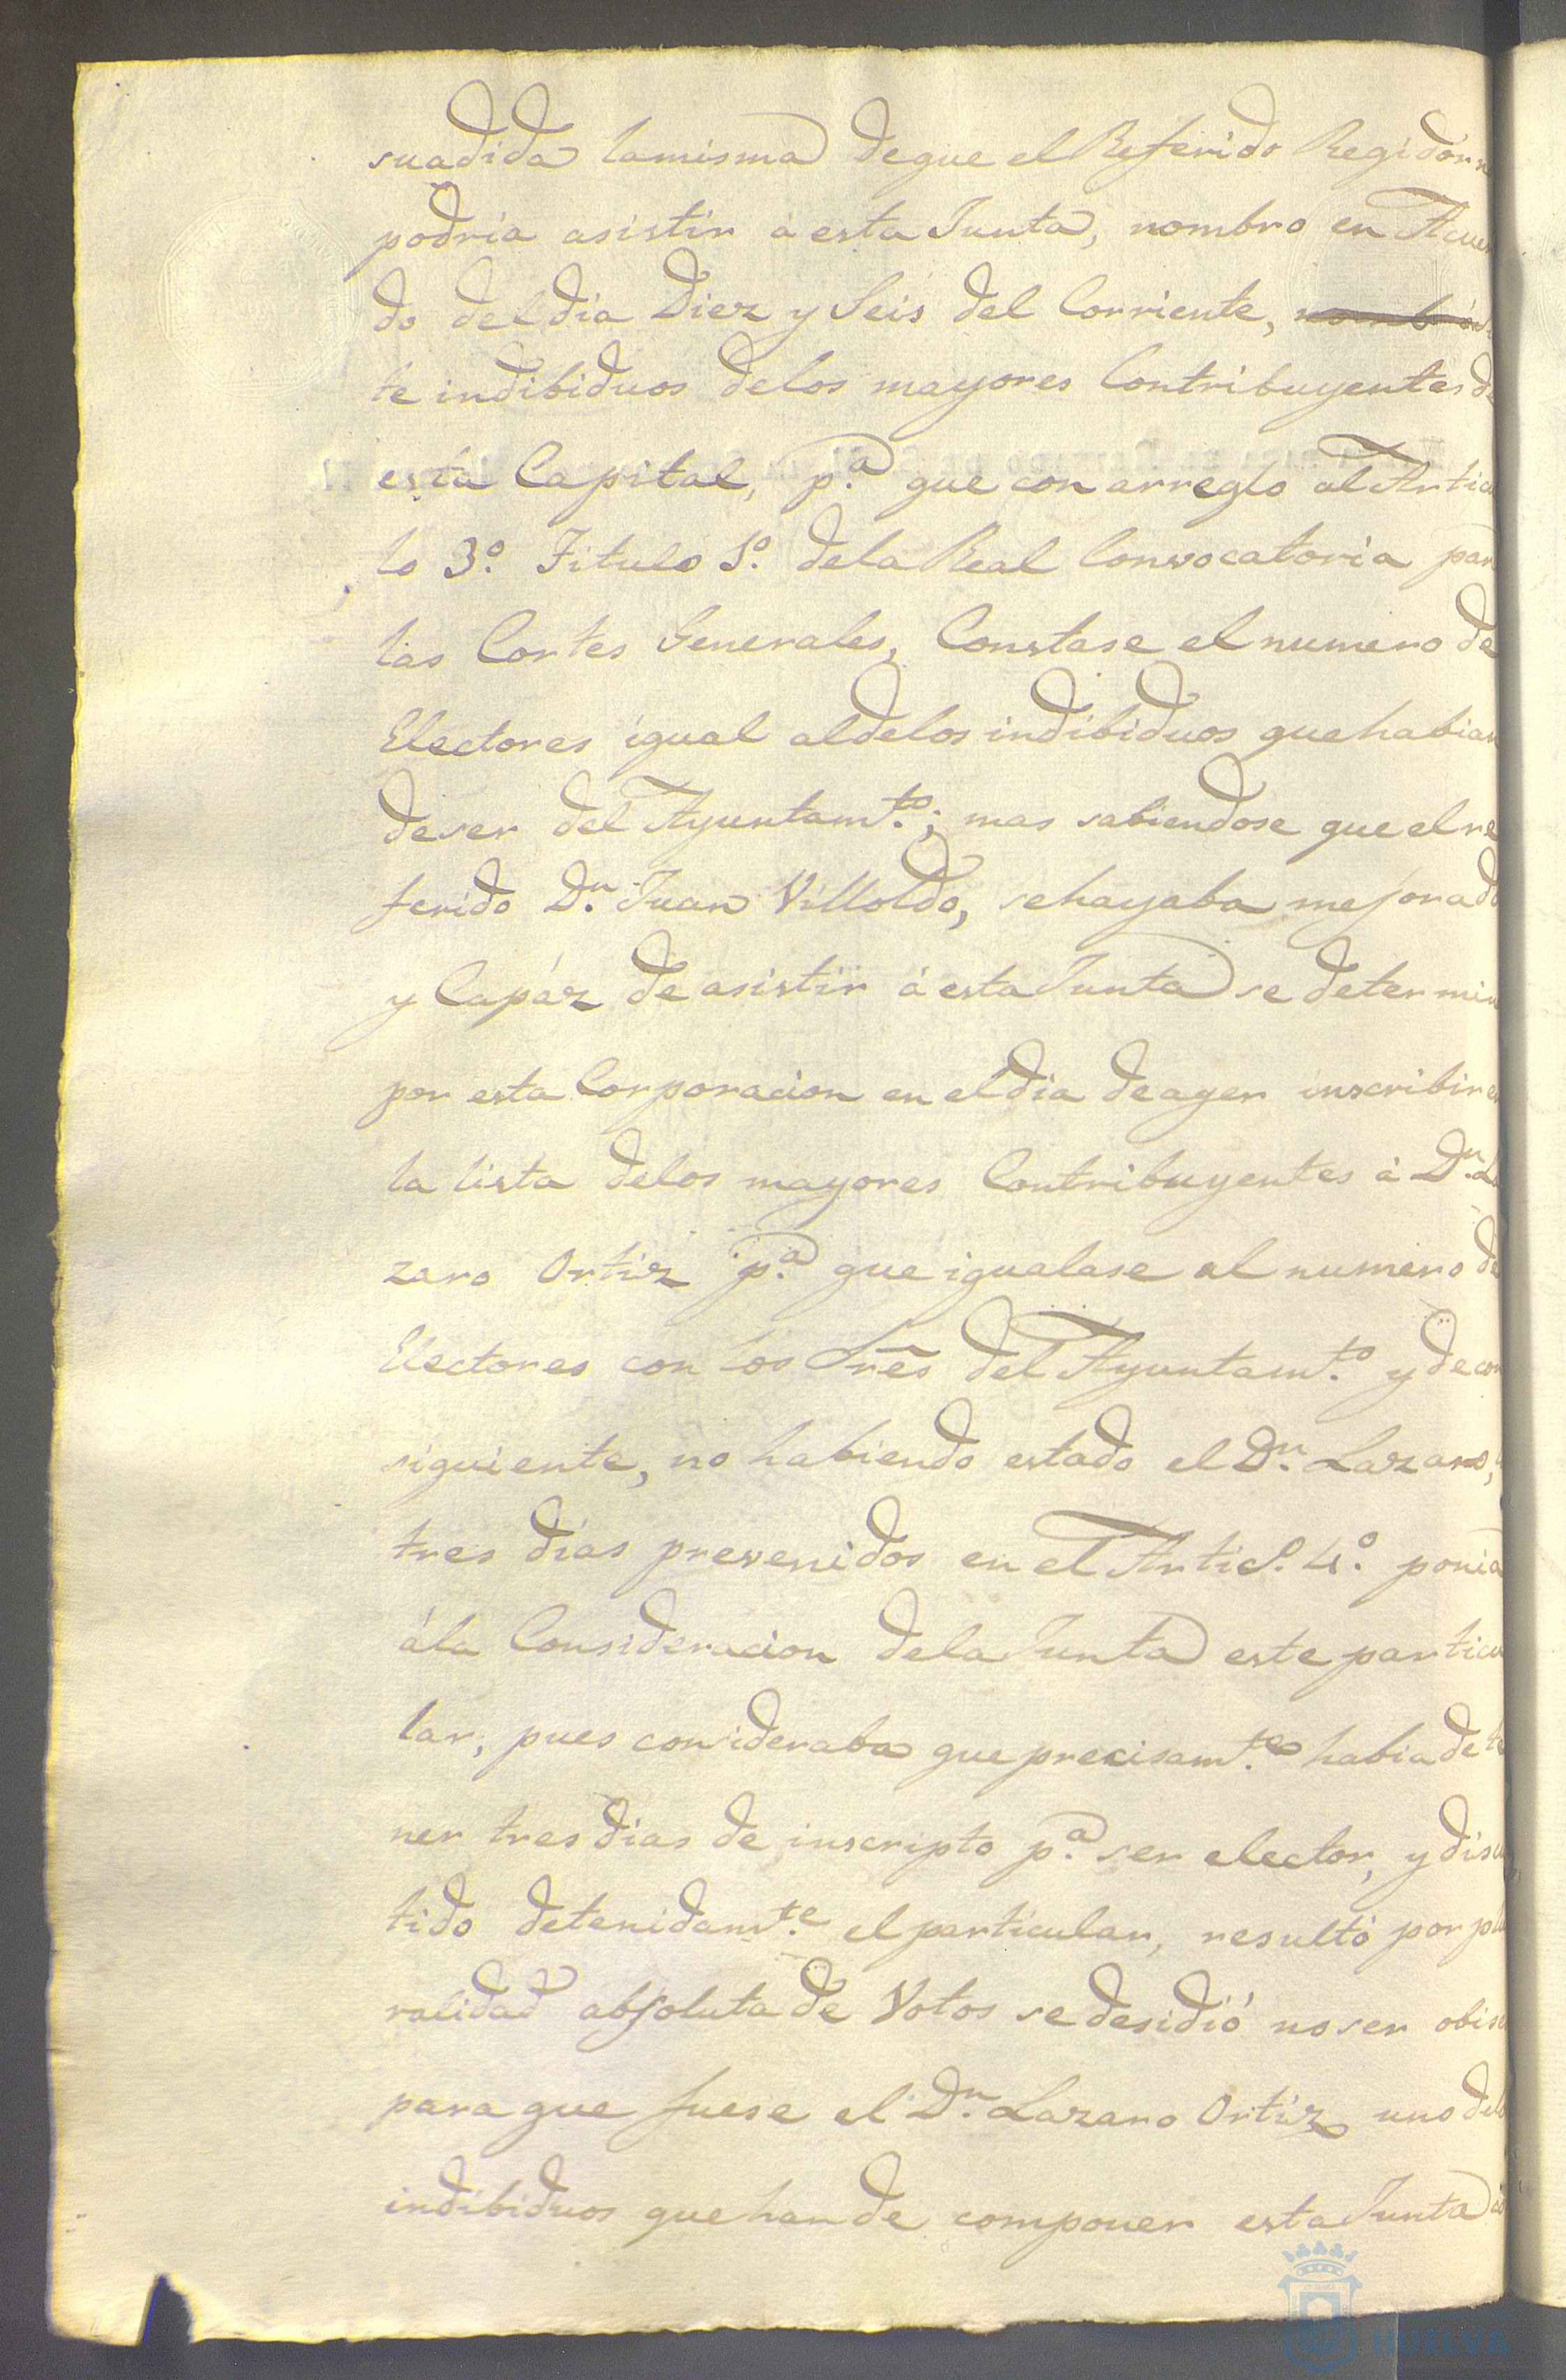 suadida lamisma deque el Referido Regidor n
podria asistir á esta Junta, nombro en Acuer
do del dia Diez y Seis del Corriente,
te indibiduos delos mayores Contribuyentes de
esta Capital, p.a que con arreglo al Articu
lo 3.o Titulo 1.o dela Real Convocatoria par
las Cortes Generales, Constase el numero de
Electores igual aldelos indibiduos que habian
deser del Ayuntam.to; mas sabiendose que el re
ferido D.n Juan Villoldo, sehayaba mejorado
y Capáz de asistir á esta Junta se determin
por esta Corporacion en el dia de ayer inscribir en
la lista delos mayores Contribuyentes á D.n La
zaro Ortiz p.a que igualase al numero de
Electores con los Sres del Ayuntam.to y de con
siguiente, no habiendo estado el D.n Lazaro,
tres dias prevenidos en el Artic.o 4.o ponia
ála Consideracion dela Junta este particu
lar, pues consideraba que precisam.te habia de te
ner tres dias de inscripto p.a ser elector, y discu
tido detenidam.te el particular, resultó por plu
ralidad absoluta de Votos se desidió no ser obise
para que fuese el D.n Lazaro Ortiz uno delos
indibiduos que han de componer esta Junta
HUELVA